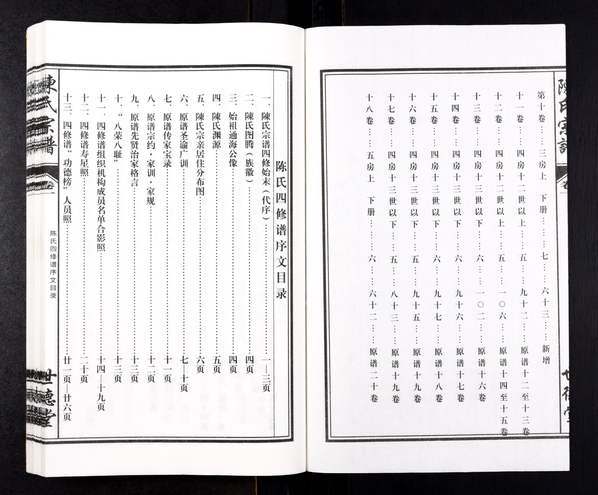 陳氏宗譜
第十卷……三房上 下册……七……六十三……新增
十一卷……四房十二世以下……五……九十二……原谱十二至十三卷
十二卷……四房十二世以上……五……一〇六……原谱十四至十五卷
十三卷……四房十三世以下……六……一〇二……原谱十六卷
十四卷……四房十三世以下……六……九十六……原谱十七卷
十五卷……四房十三世以下
十六卷……四房十三世以下……五……九十五……原谱十八卷
十七卷……四房十三世以下……五……八十三……原谱十九卷
十八卷……五房上 下册……六……六十二……原谱二十卷
世德堂
陈氏四修谱序文目录
一、陈氏宗谱四修始末（代序）……一—三页
二、陳氏图腾（族徽）……四页
三、始祖通海公像……四页
四、陳氏渊源……五页
五、陈氏宗亲居住分布图……六页
六、原谱圣谕广训……七—十页
七、原谱传家宝录……十一页
八、原谱宗约·家训·家规……十二页
九、原谱先贤治家格言……十三页
十、“八荣八耻”……十三页
十一、四修谱组织机构成员名单合影照……十四—十九页
十二、四修谱寿星照……二十页
十三、四修谱“功德榜”人员照……廿一页—廿六页
陳氏宗譜
卷一
陈氏四修谱序文目录
世德堂